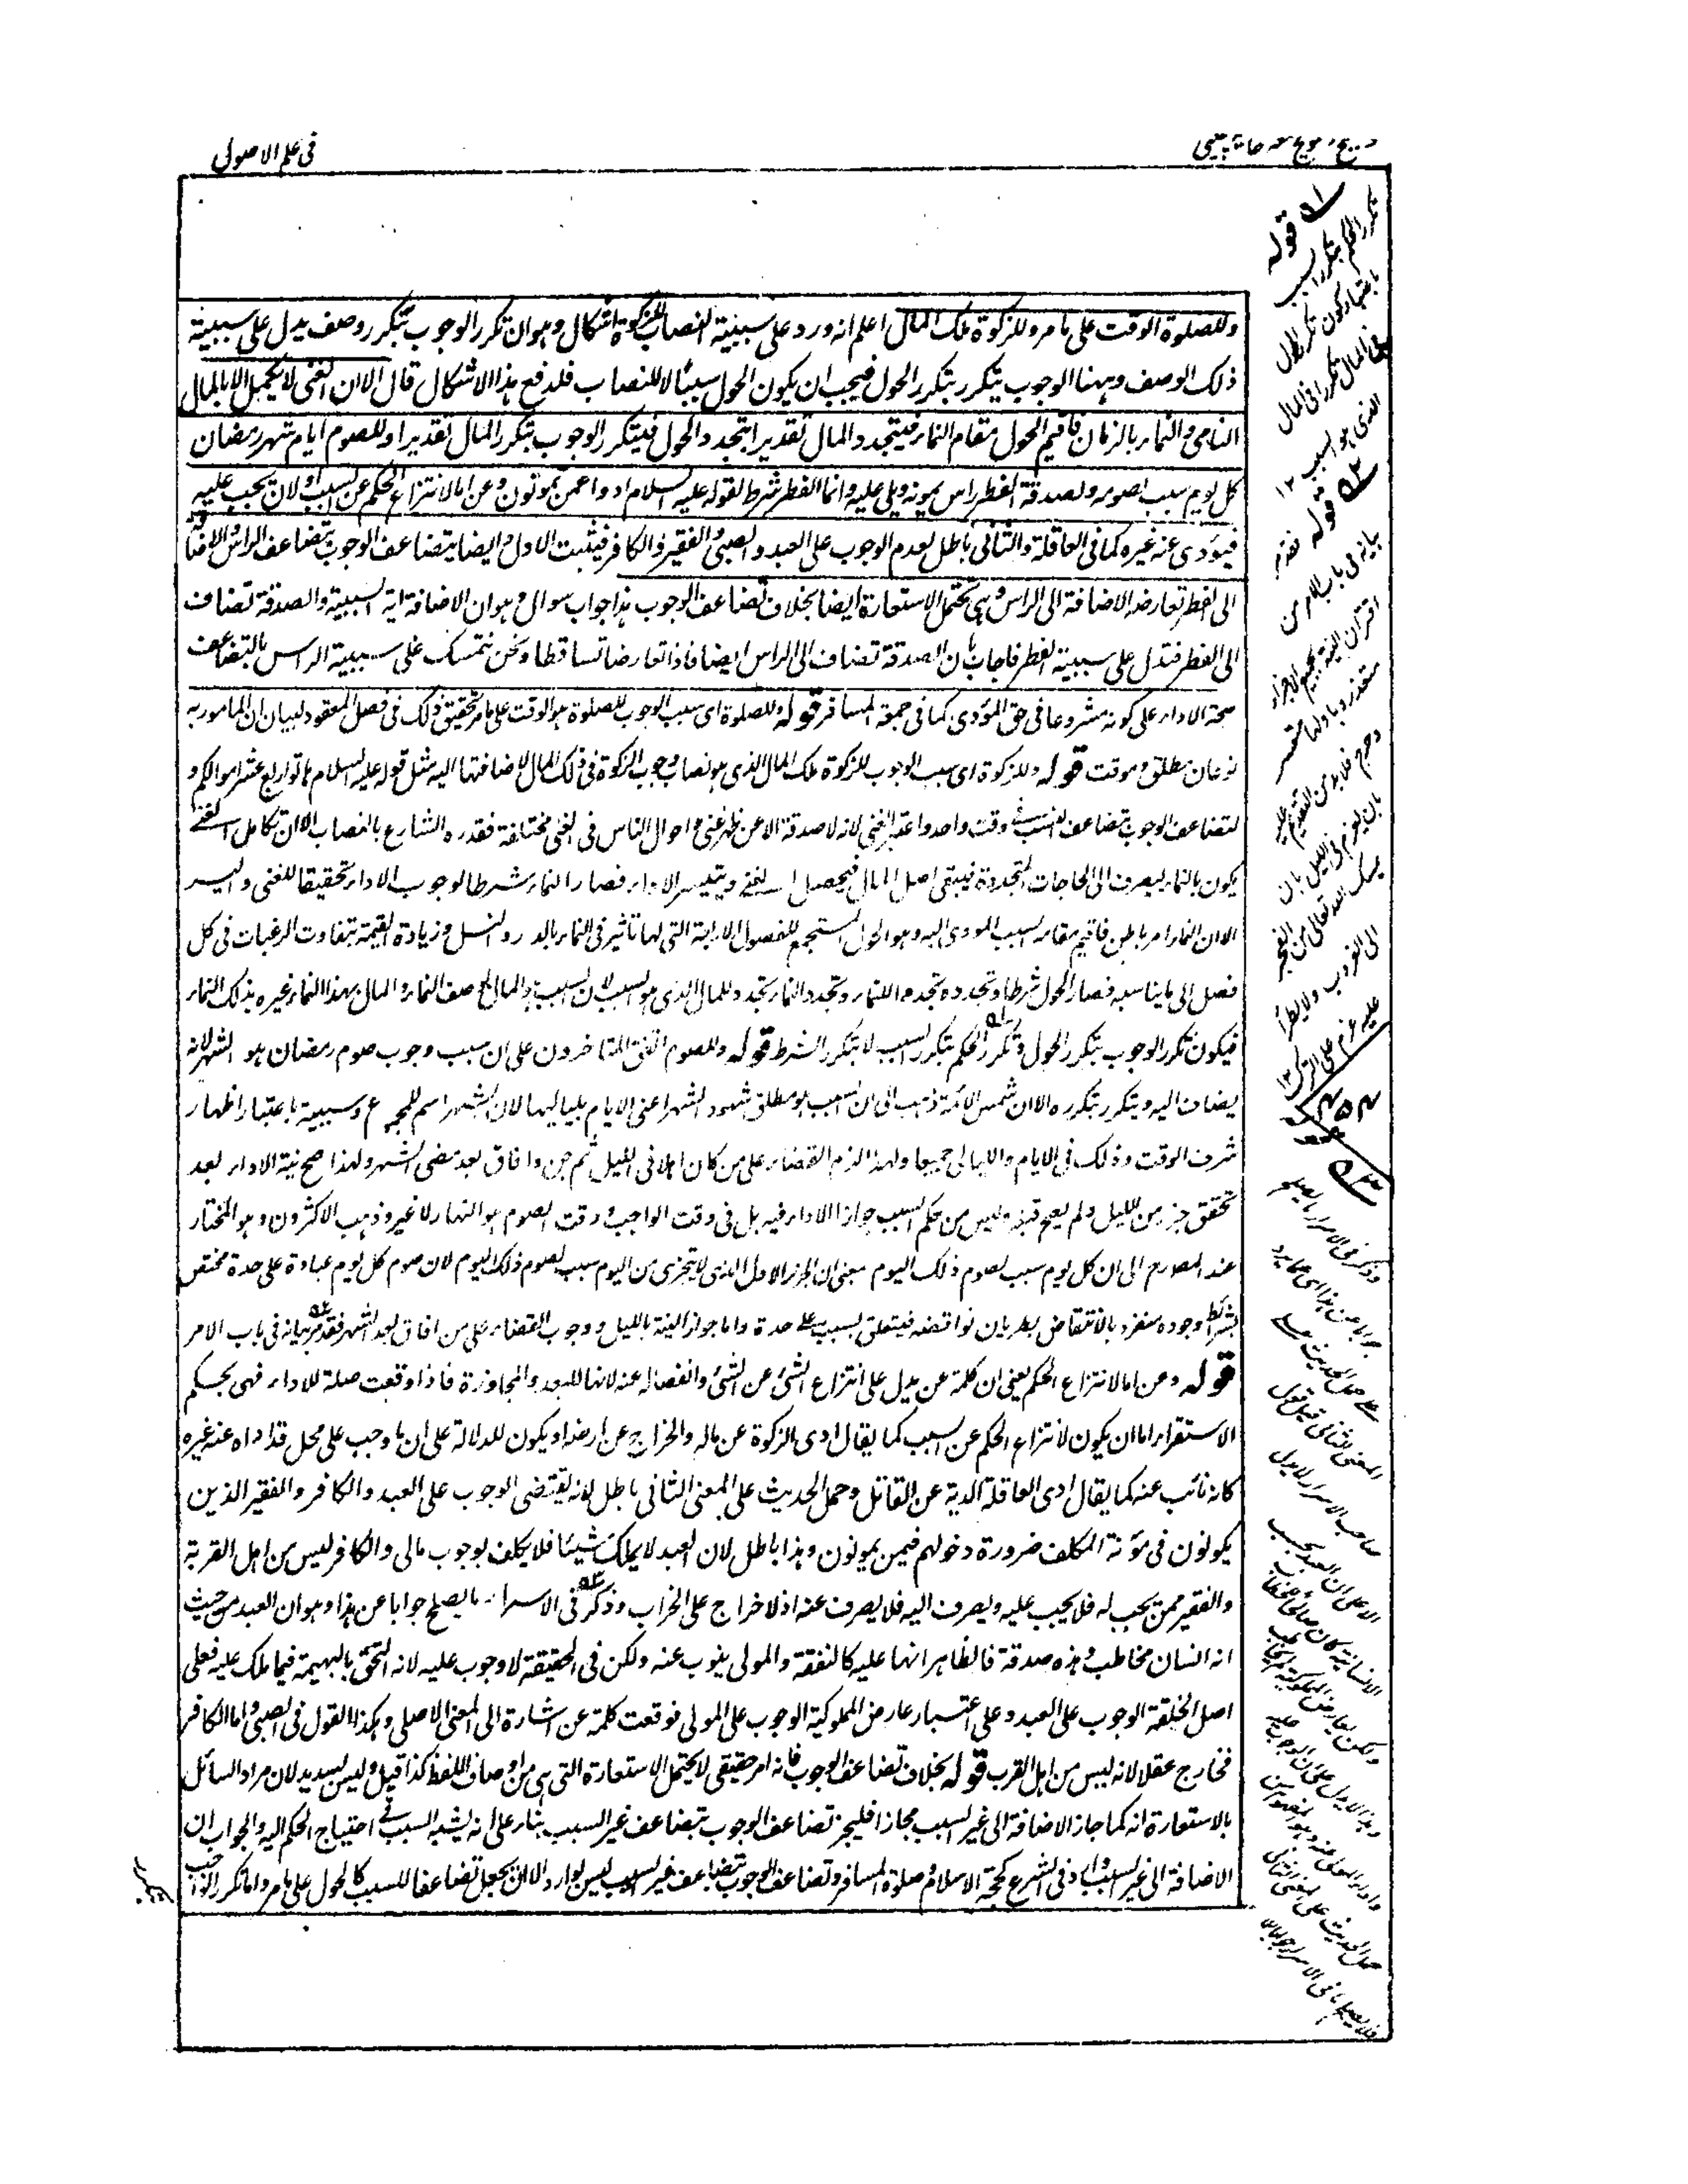 في علم الاصول
وللصلوة الوقت على ما مر وللزكوة ملك المال اعلم انه ورد على سببية النصاب للزكوة اشكال وهو ان تكرر الوجوب بتكرر وصف يدل على سببية
ذلك الوصف وههنا الوجوب يتكرر بتكرر الحول فيجب ان يكون الحول سببًا لا للنصاب فلدفع هذا الاشكال قال الا ان الغنى لا يكمل الا بالمال
النامي والنماء بالزمان فاقيم الحول مقام النماء فيتجدد المال تقديرا بتجدد الحول فيتكرر الوجوب بتكرر المال تقديرا وللصوم ايام شهر رمضان
كل يوم سبب لصومه ولصدقة الفطر راس يمونه ويلي عليه وانما الفطر شرط لقوله عليه السلام ادوا عمن تمونون وعن اما لانتزاع الحكم عن السبب او لان يجب عليه
فيؤدى عنه غيره كما في العاقلة والثاني باطل لعدم الوجوب على العبد والصبي والفقير والكافر فيثبت الاول وايضا يتضاعف الوجوب بتضاعف الراس والاضافة
الى الفطر تعارضه الاضافة الى الراس وهي تحتمل الاستعارة ايضا بخلاف تضاعف الوجوب هذا جواب سوال وهو ان الاضافة اية السببية والصدقة تضاف
الى الفطر فتدل على سببية الفطر فاجاب بان الصدقة تضاف الى الراس ايضا فاذا تعارضا تساقطا ونحن نتمسك على سببية الراس بالتضاعف
صحة الاداء على كونه مشروعا في حق المؤدى كما في جمعة المسافر قوله وللصلوة اى سبب الوجوب للصلوة هو الوقت على ما مر تحقيق ذلك في فصل المعقود لبيان ان المامور به
نوعان مطلق وموقت قوله وللزكوة اى سبب الوجوب للزكوة ملك المال الذي هو نصاب وجوب الزكوة في ذلك المال لاضافتها اليه مثل قوله عليه السلام هاتوا ربع عشر اموالكم و
لتضاعف الوجوب بتضاعف النصب في وقت واحد واعتبر الغنى لانه لا صدقة الا عن ظهر غنى واحوال الناس في الغنى مختلفة فقدره الشارع بالنصاب الا ان تكامل الغنى
يكون بالنماء ليصرف الى الحاجات المتجددة فيبقى اصل المال فيحصل الغنى ويتيسر الاداء فصار النماء شرطا لوجوب الاداء تحقيقا للغنى واليسر
الا ان النماء امر باطن فاقيم مقامه السبب المودي اليه وهو الحول المستجمع للفصول الاربعة التي لها تاثير في النماء بالدر والنسل وزيادة القيمة بتفاوت الرغبات في كل
فصل الى ما يناسبه فصار الحول شرطا وتجدده تجددا للنماء وتجدد النماء تجدد للمال الذي هو السبب لان السبب هو المال بوصف النماء والمال بهذا النماء غيره بذلك النماء
فيكون تكرر الوجوب بتكرر الحول وتكرر الحكم بتكرر السبب لا بتكرر الشرط قوله وللصوم اتفق المتاخرون على ان سبب وجوب صوم رمضان هو الشهر لانه
يضاف اليه ويتكرر بتكرره الا ان شمس الائمة ذهب الى ان السبب هو مطلق شهود الشهر اعنى الايام بلياليها لان الشهر اسم للمجموع وسببية باعتبار اظهار
شرف الوقت وذلك في الايام والليالي جميعا ولهذا لزم القضاء على من كان اهلا في الليل ثم جن وافاق بعد مضى الشهر ولهذا صح نية الاداء بعد
تحقق جزء من الليل ولم يصح قبله وليس من حكم السبب جواز الاداء فيه بل في وقت الواجب ووقت الصوم هو النهار لا غير وذهب الاكثرون وهو المختار
عند المص رح الى ان كل يوم سبب لصوم ذلك اليوم بمعنى ان الجزء الاول الذي لا يتجزى من اليوم سبب لصوم ذلك اليوم لان صوم كل يوم عبادة على حدة مختص
بشرائط وجوده منفرد بالانتقاض بطريان نواقضه فيتعلق بسبب على حدة واما جواز النية بالليل ووجوب القضاء على من افاق بعد الشهر فقد مر بيانه في باب الامر
قوله وعن اما لانتزاع الحكم يعنى ان كلمة عن يدل على انتزاع الشئ عن الشئ وانفصاله عنه لانها للبعد والمجاوزة فاذا وقعت صلة للاداء فهى بحكم
الاستقراء اما ان يكون لانتزاع الحكم عن السبب كما يقال ادى الزكوة عن ماله والخراج عن ارضه او يكون للدلالة على ان ما وجب على محل قد اداه عنه غيره
كانه نائب عنه كما يقال ادى العاقلة الدية عن القاتل وحمل الحديث على المعنى الثاني باطل لانه يقتضى الوجوب على العبد والكافر والفقير الذين
يكونون في مؤنة المكلف ضرورة دخولهم فيمن يمونون وهذا باطل لان العبد لا يملك شيئا فلا يكلف بوجوب مالى والكافر ليس من اهل القربة
والفقير ممن يجب له فلا يجب عليه ويصرف اليه فلا يصرف عنه اذ لا خراج على الخراب وذكر في الاسرار ما يصلح جوابا عن هذا وهو ان العبد من حيث
انه انسان مخاطب وهذه صدقة فالظاهر انها عليه كالنفقة والمولى ينوب عنه ولكن في الحقيقة لا وجوب عليه لانه التحق بالبهيمة فيما ملك عليه فعلى
اصل الخلقة الوجوب على العبد وعلى اعتبار عارض المملوكية الوجوب على المولى فوقعت كلمة عن اشارة الى المعنى الاصلي وهكذا القول في الصبي واما الكافر
فخارج عقلا لانه ليس من اهل القرب قوله بخلاف تضاعف الوجوب فانه امر حقيقى لا يحتمل الاستعارة التي هي من اوصاف اللفظ كذا قيل وليس بسديد لان مراد السائل
بالاستعارة انه كما جاز الاضافة الى غير السبب مجازا فليجز تضاعف الوجوب بتضاعف غير السبب بناء على انه يشبه السبب في احتياج الحكم اليه والجواب ان
الاضافة الى غير السبب وارد في الشرع كحجة الاسلام وصلوة المسافر وتضاعف الوجوب بتضاعف غير السبب ليس بوارد الا ان يجعل تضاعفا للسبب كالحول على ما مر واما تكرر الواجب
بتكرر
قوله
تكرر الحكم بتكرر السبب
باعتبار كون تكرر الحول
على المال تكررا في المال
الذي هو السبب ١٢
قوله فقد مر
بيانه في باب الامر من